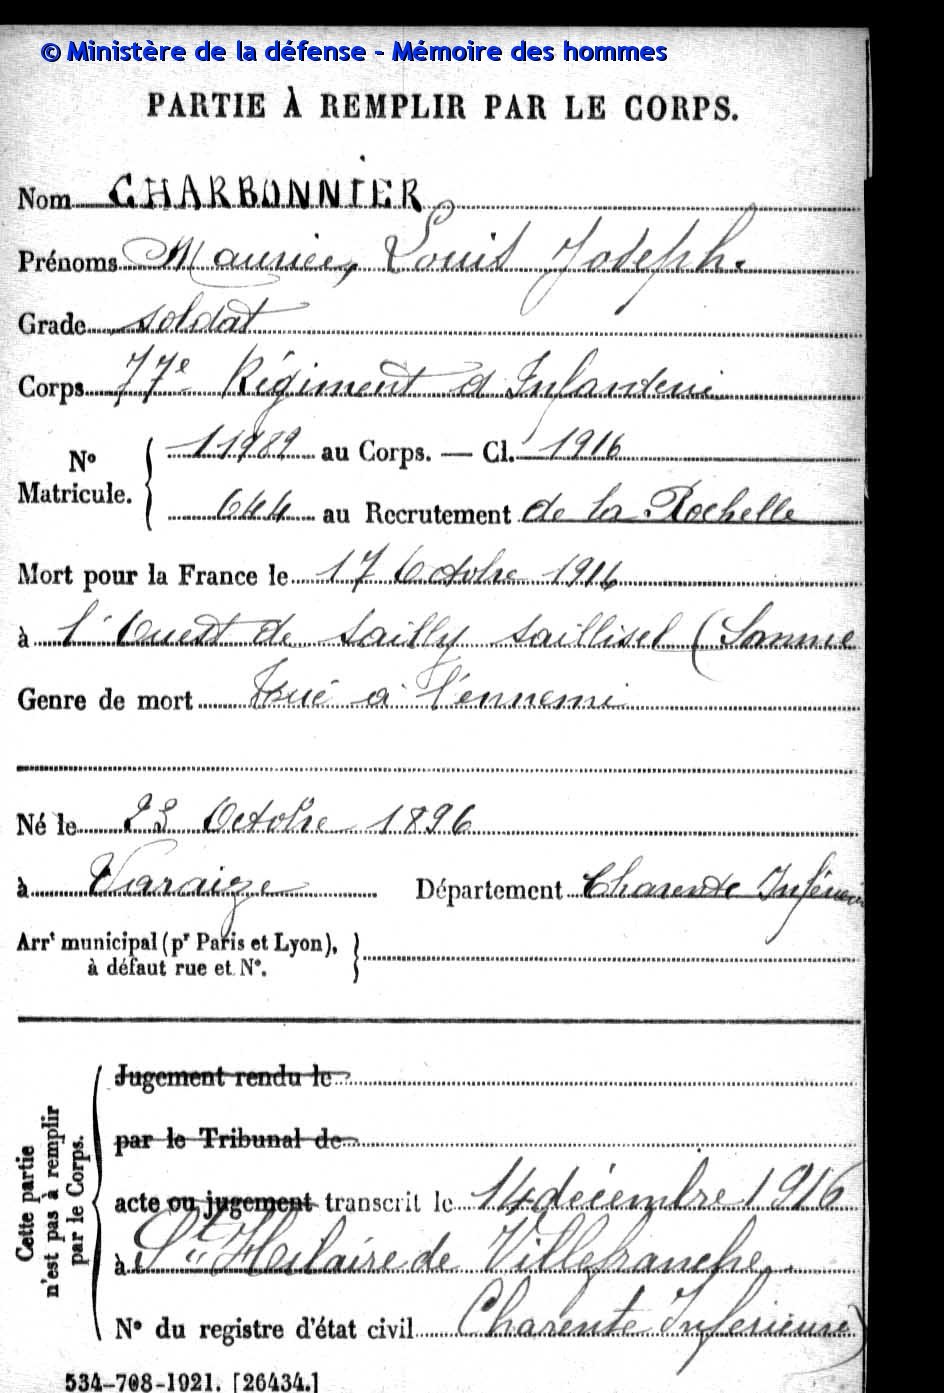 © Ministère de la défense - Mémoire des hommes
PARTIE À REMPLIR PAR LE CORPS.
Nom CHARBONNIER
Prénoms Maurice, Louis Joseph.
Grade soldat
Corps 77e Régiment d Infanterie
No Matricule. { 11989 au Corps. — Cl. 1916
644 au Recrutement de La Rochelle
Mort pour la France le 17 Octobre 1916
à l'Ouest de Sailly Saillisel (Somme
Genre de mort Tué à l'ennemi
Né le 23 Octobre 1896
à Varaize Département Charente Inférieure
Arrt municipal (pr Paris et Lyon), }
à défaut rue et No.
Cette partie n'est pas à remplir par le Corps.
Jugement rendu le
par le Tribunal de
acte ou jugement transcrit le 14 décembre 1916
à St Hilaire de Villefranche
No du registre d'état civil Charente Inférieure)
534-708-1921. [26434.]